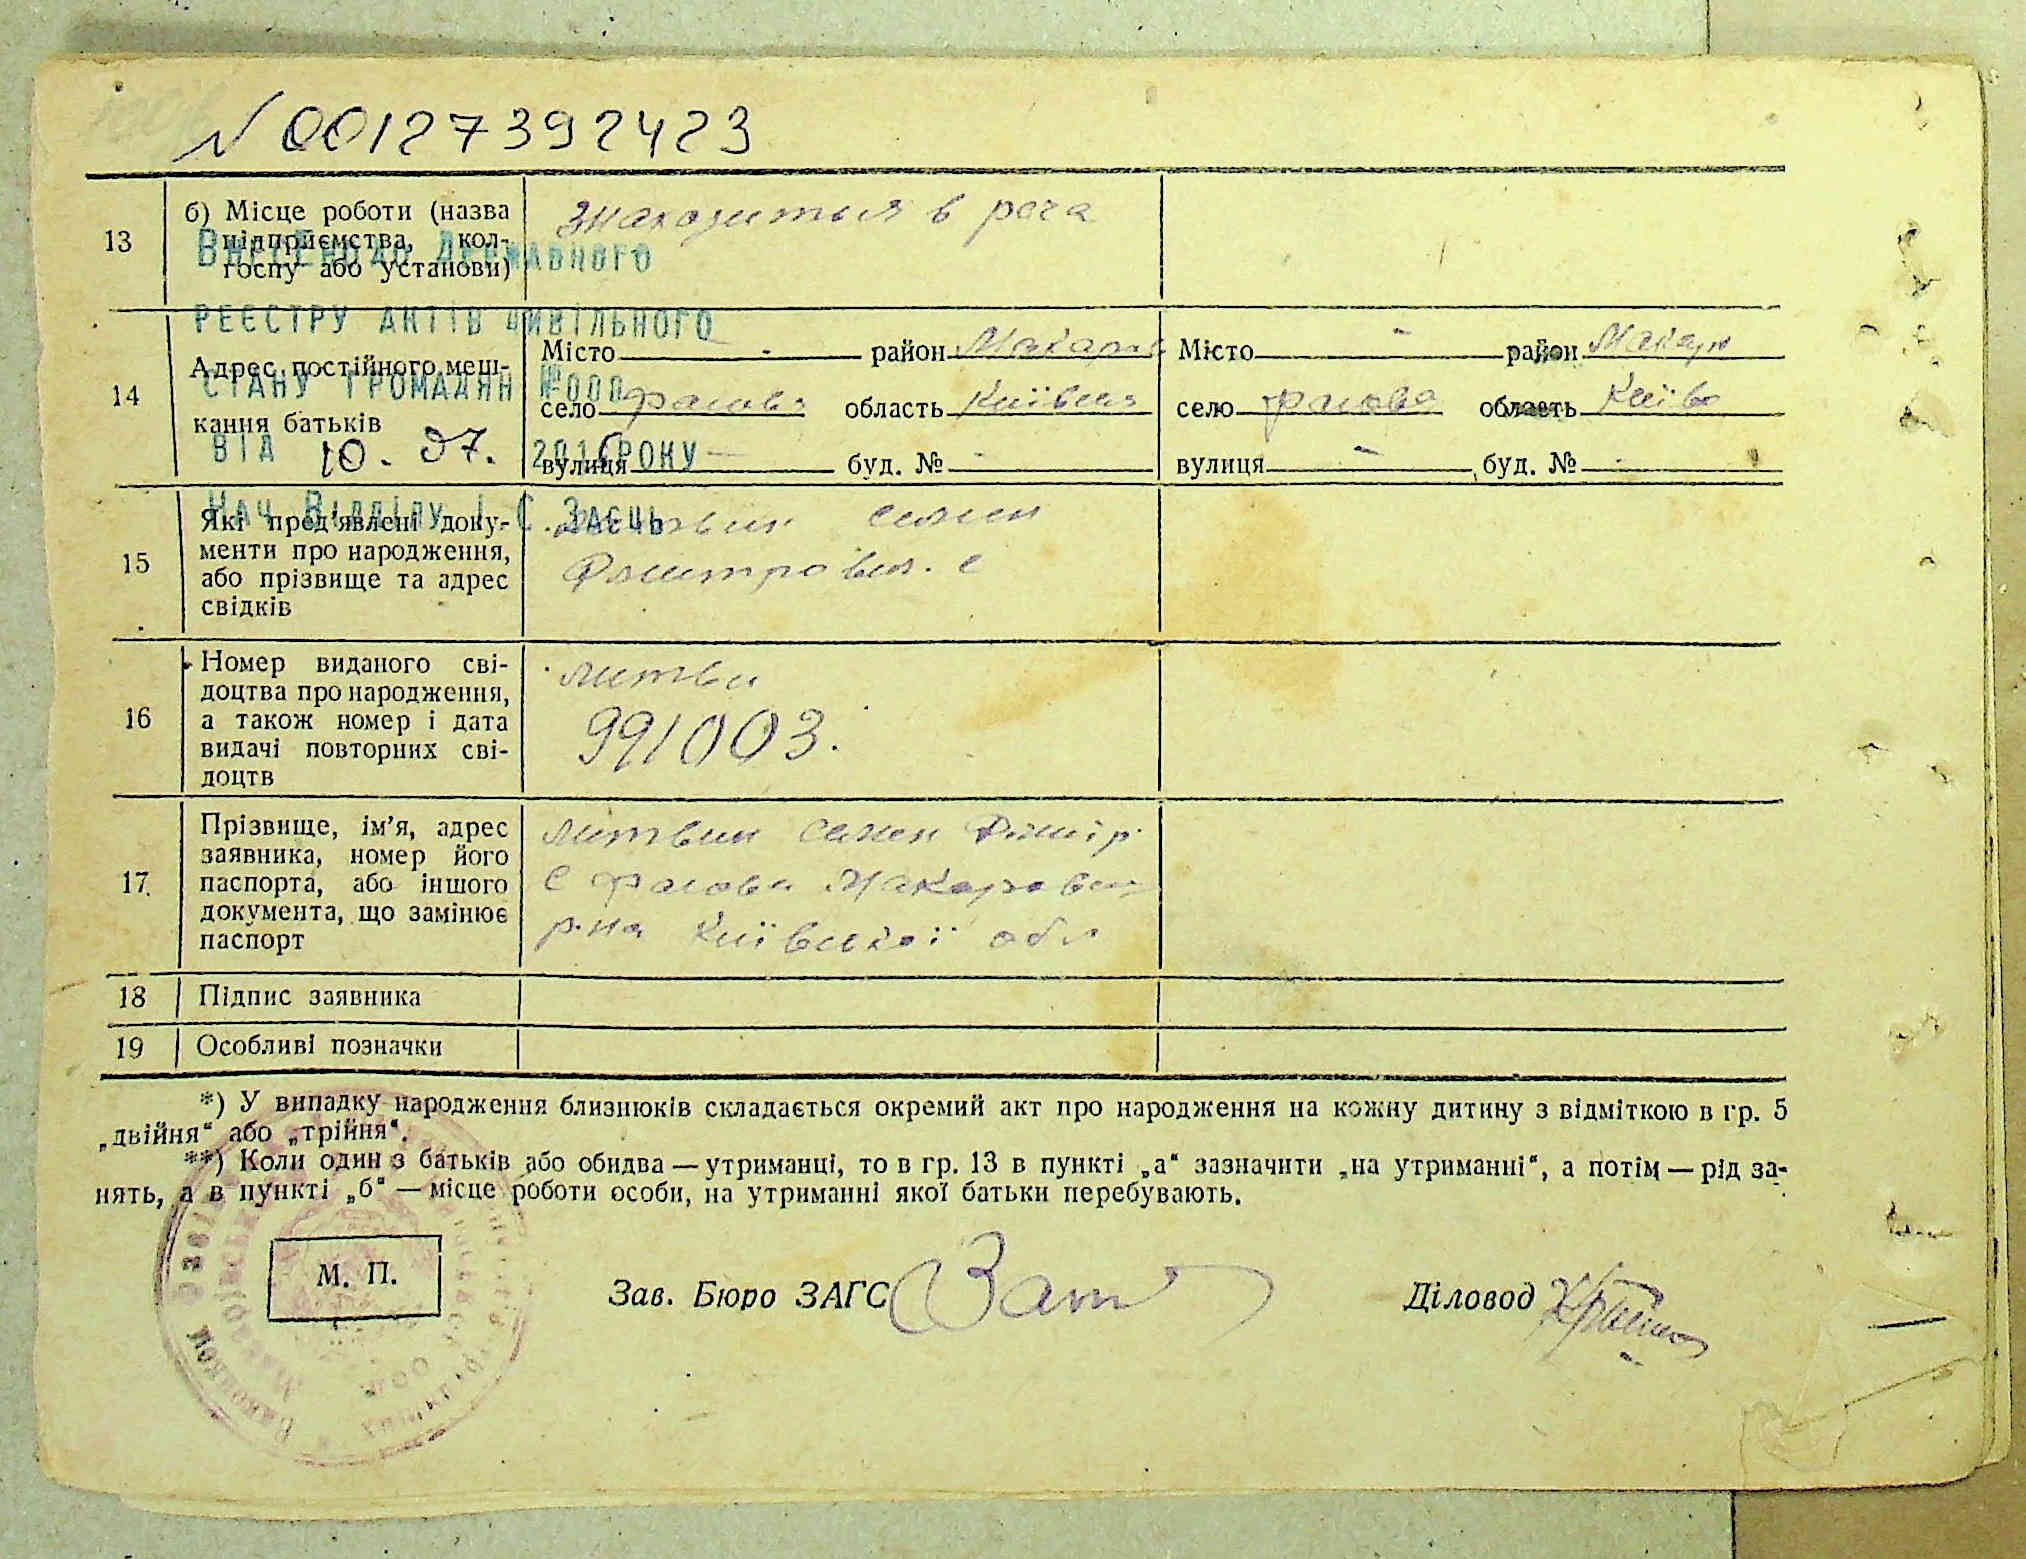 N 00127392423
13
б) Місце роботи (назва
підприємства, кол-
госпу або установи)
знаходиться в
ВНЕСЕНО ДО ДЕРЖАВНОГО
РЕЄСТРУ АКТІВ ЦИВІЛЬНОГО
СТАНУ ГРОМАДЯН №000
ВІД 10. 07. 2016 РОКУ
НАЧ ВІДДІЛУ І С ЗАЄЦЬ
14
Адрес постійного меш-
кання батьків
Місто - район Макарів
село область Київська
вулиця - буд. № -
Місто - район Макар
село область Київ
вулиця - буд. № -
15
Які пред'явлені доку-
менти про народження,
або прізвище та адрес
свідків
Литвин Семен
16
Номер виданого сві-
доцтва про народження,
а також номер і дата
видачі повторних сві-
доцтв
литви
991003.
17.
Прізвище, ім'я, адрес
заявника, номер його
паспорта, або іншого
документа, що замінює
паспорт
литвин Семен
с Макаровськ
р-на Київської обл
18
Підпис заявника
19
Особливі позначки
*) У випадку народження близнюків складається окремий акт про народження на кожну дитину з відміткою в гр. 5
„двійня“ або „трійня“.
**) Коли один з батьків або обидва — утриманці, то в гр. 13 в пункті „а“ зазначити „на утриманні“, а потім — рід за-
нять, а в пункті „б“ — місце роботи особи, на утриманні якої батьки перебувають.
М. П.
Зав. Бюро ЗАГС
Діловод